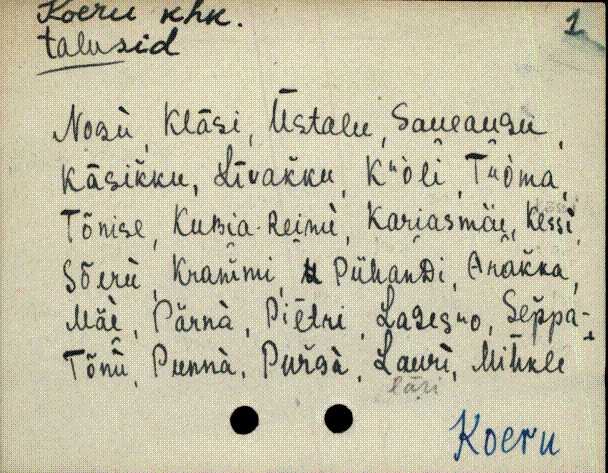 Koeru khk. 1
talusid
Nosù, Klāsi, Ǖstalu, Saueausu,
Kāsikku, Līvakku, Kᵘòlì, Tᵘòma,
Tõnise, Kubia-Reinù, Kariasmäe, Kessì,
Sõerù, Krammi, Pühandi, Arakka,
Mäè, Pärnà, Piētri, Seppä-
Tõnù, Punnà, Pursà, Laurì, Mihkli
läri
Koeru